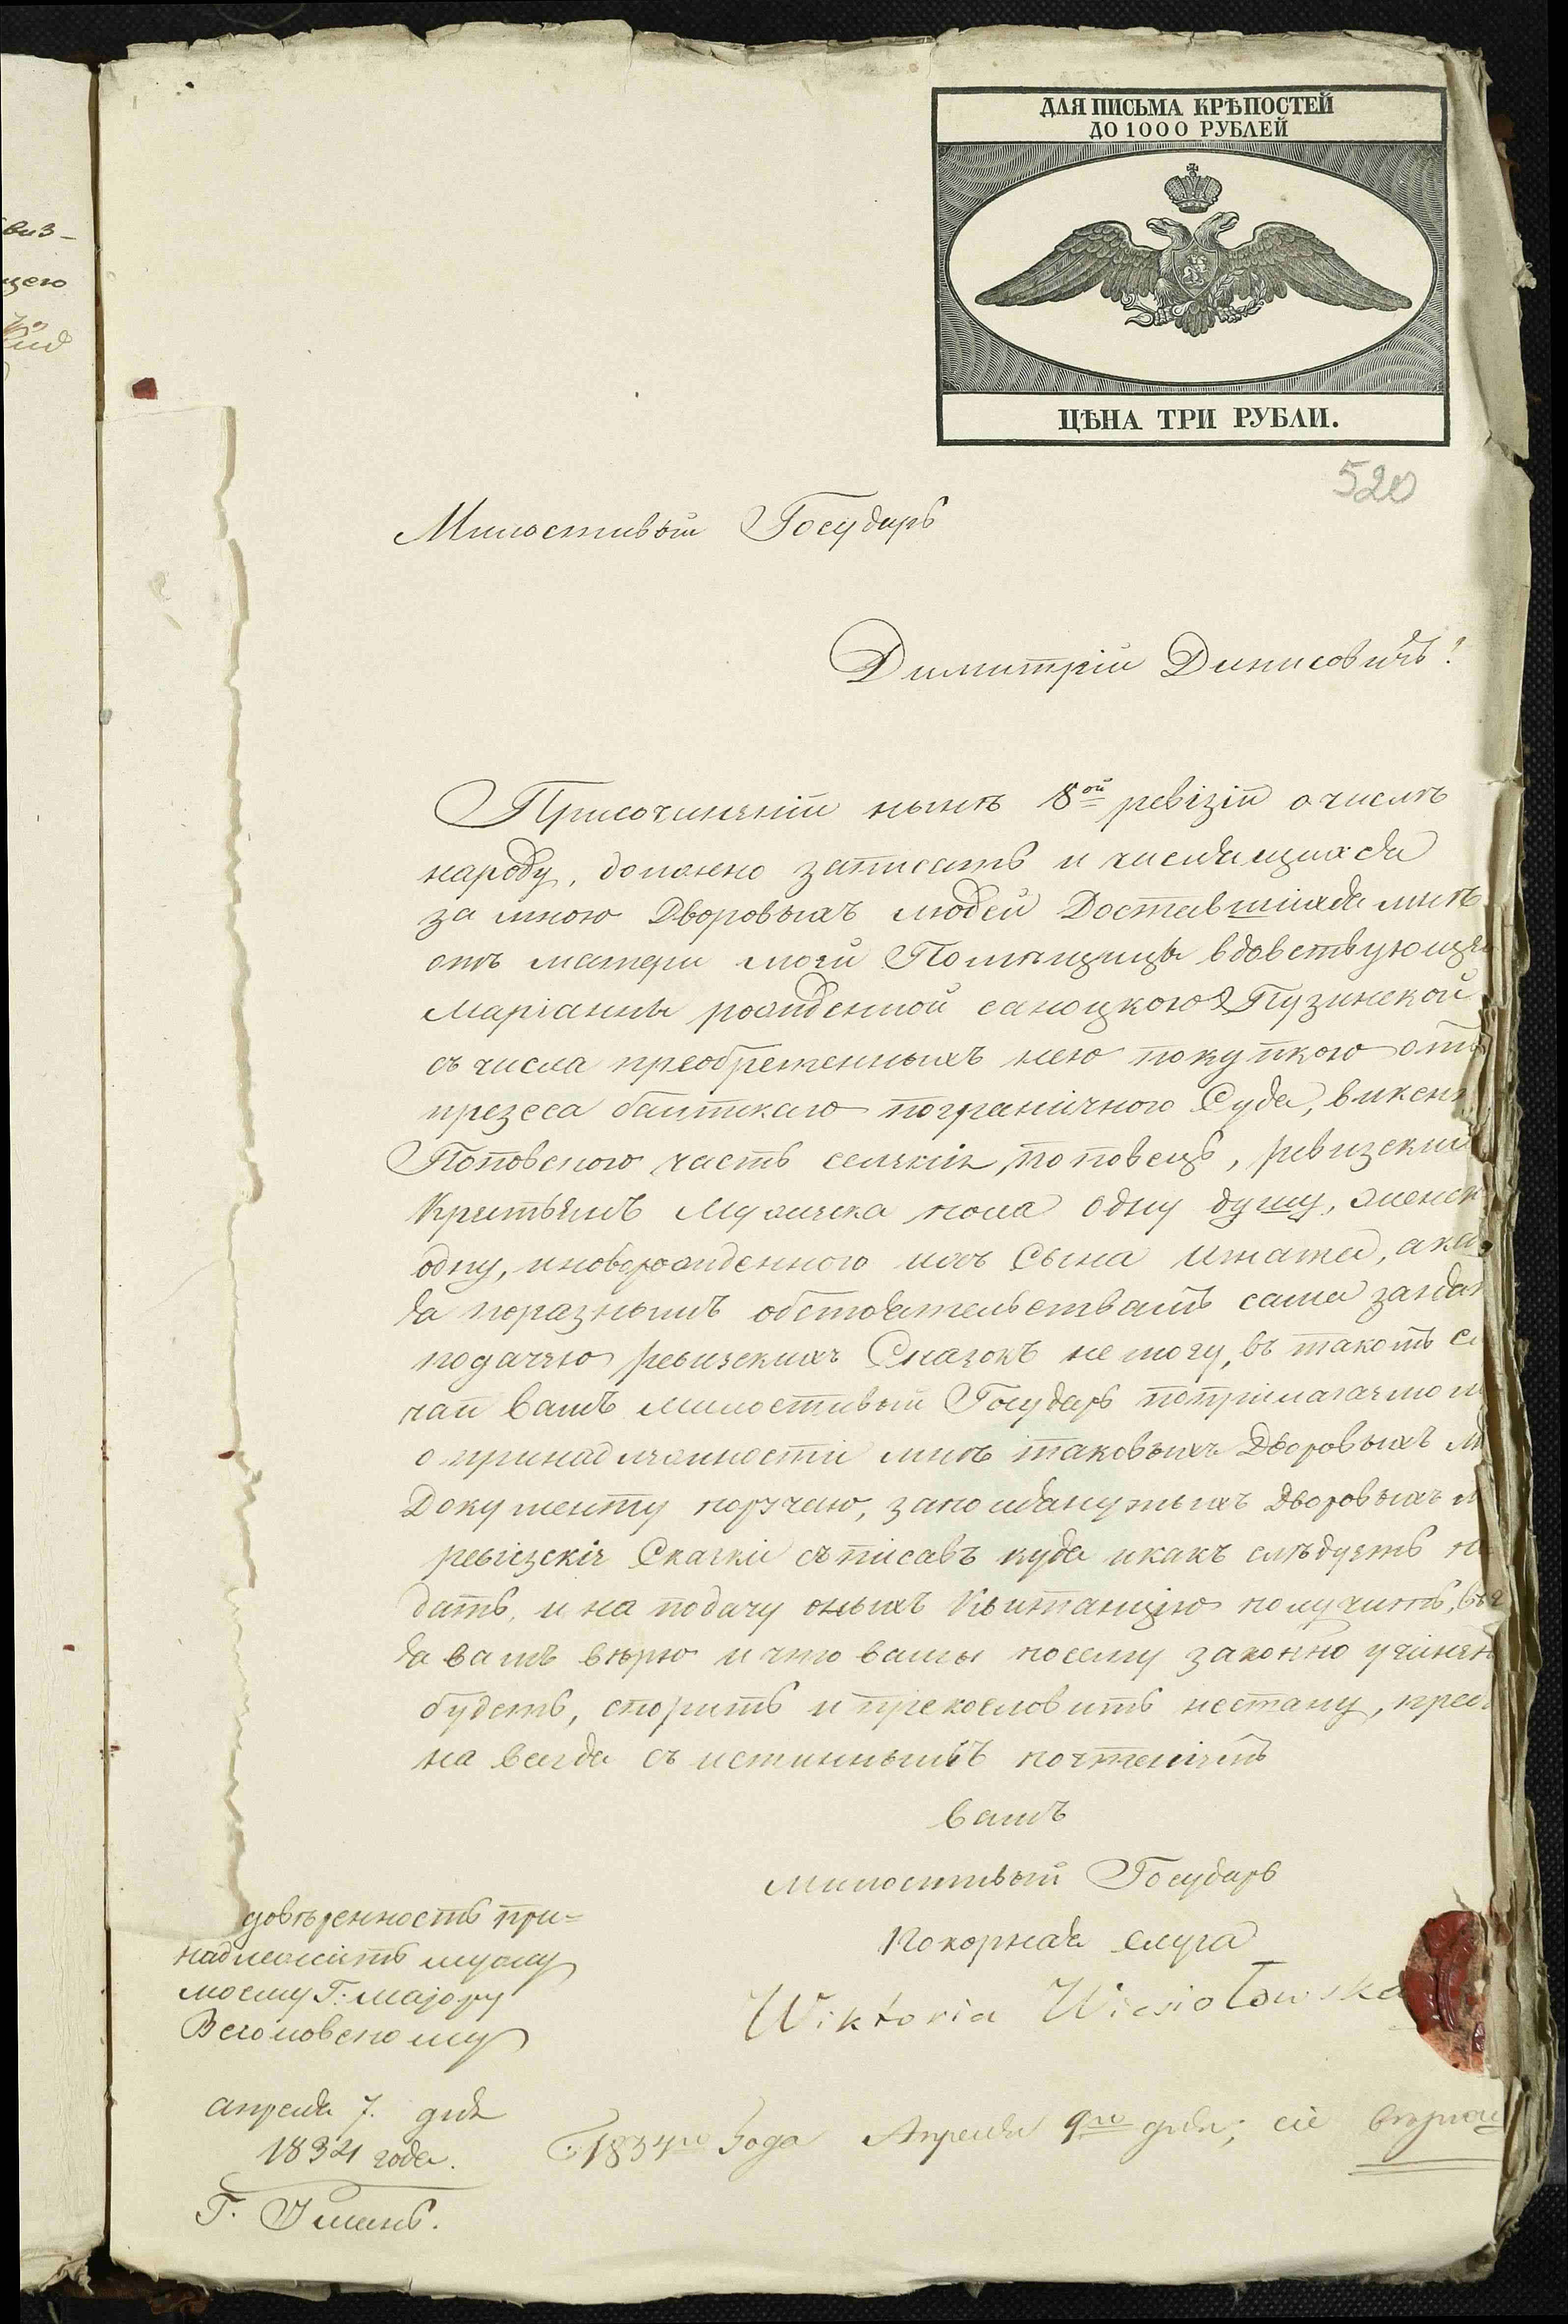 виз-
щего
ДЛЯ ПИСЬМА КРѢПОСТЕЙ
ДО 1000 РУБЛЕЙ
ЦѢНА ТРИ РУБЛИ.
520
Милостивый Государь
Димитрій Динисовичъ!
Присочиненіи нынѣ 8ой ревізіи очислѣ
народу, должно записать и числящихся
за мною Дворовыхъ людей Доставшихся мнѣ
отъ матери моей Помѣщицы вдовствующей
Маріанны рожденной саноцкою Пузинской
съ числа преобретенныхъ нею покупкою отъ
презеса балтскаго пограничного Суда, викен
Поповского часть селенія поповецъ, ревизским
Крестьянъ Мужеска пола одну душу, женск
одну, иноворожденного ихъ Сына Игната, ака
я поразнымъ обстоятельствамъ сама
подачею ревизскихъ Сказокъ не могу, въ такомъ слу
чаи вамъ милостивый Государь поприлагаемому
о принадлежности мнѣ таковыхъ Дворовыхъ л
Документу поручаю, запомянутыхъ дворовыхъ л
ревізскіе Сказки съписавъ куда икакъ слѣдуетъ по
дать, и на подачу оныхъ Квитанцію получить, въ
я вамъ вѣрю и что вами посему законно учинен
будетъ, спорить и прекословить нестану, пребы
на всегда съ истиннымъ почтеніемъ
вамъ
милостивый Государь
Покорная слуга
Wiktoria Wiesiołowska
довѣренность при=
надлежитъ мужу
моему Г: маіору
Веголовскому
апреля 7. дня
1834 года.
Г. Умань.
1834го Года Апреля 9го дня; сіе вѣрющ